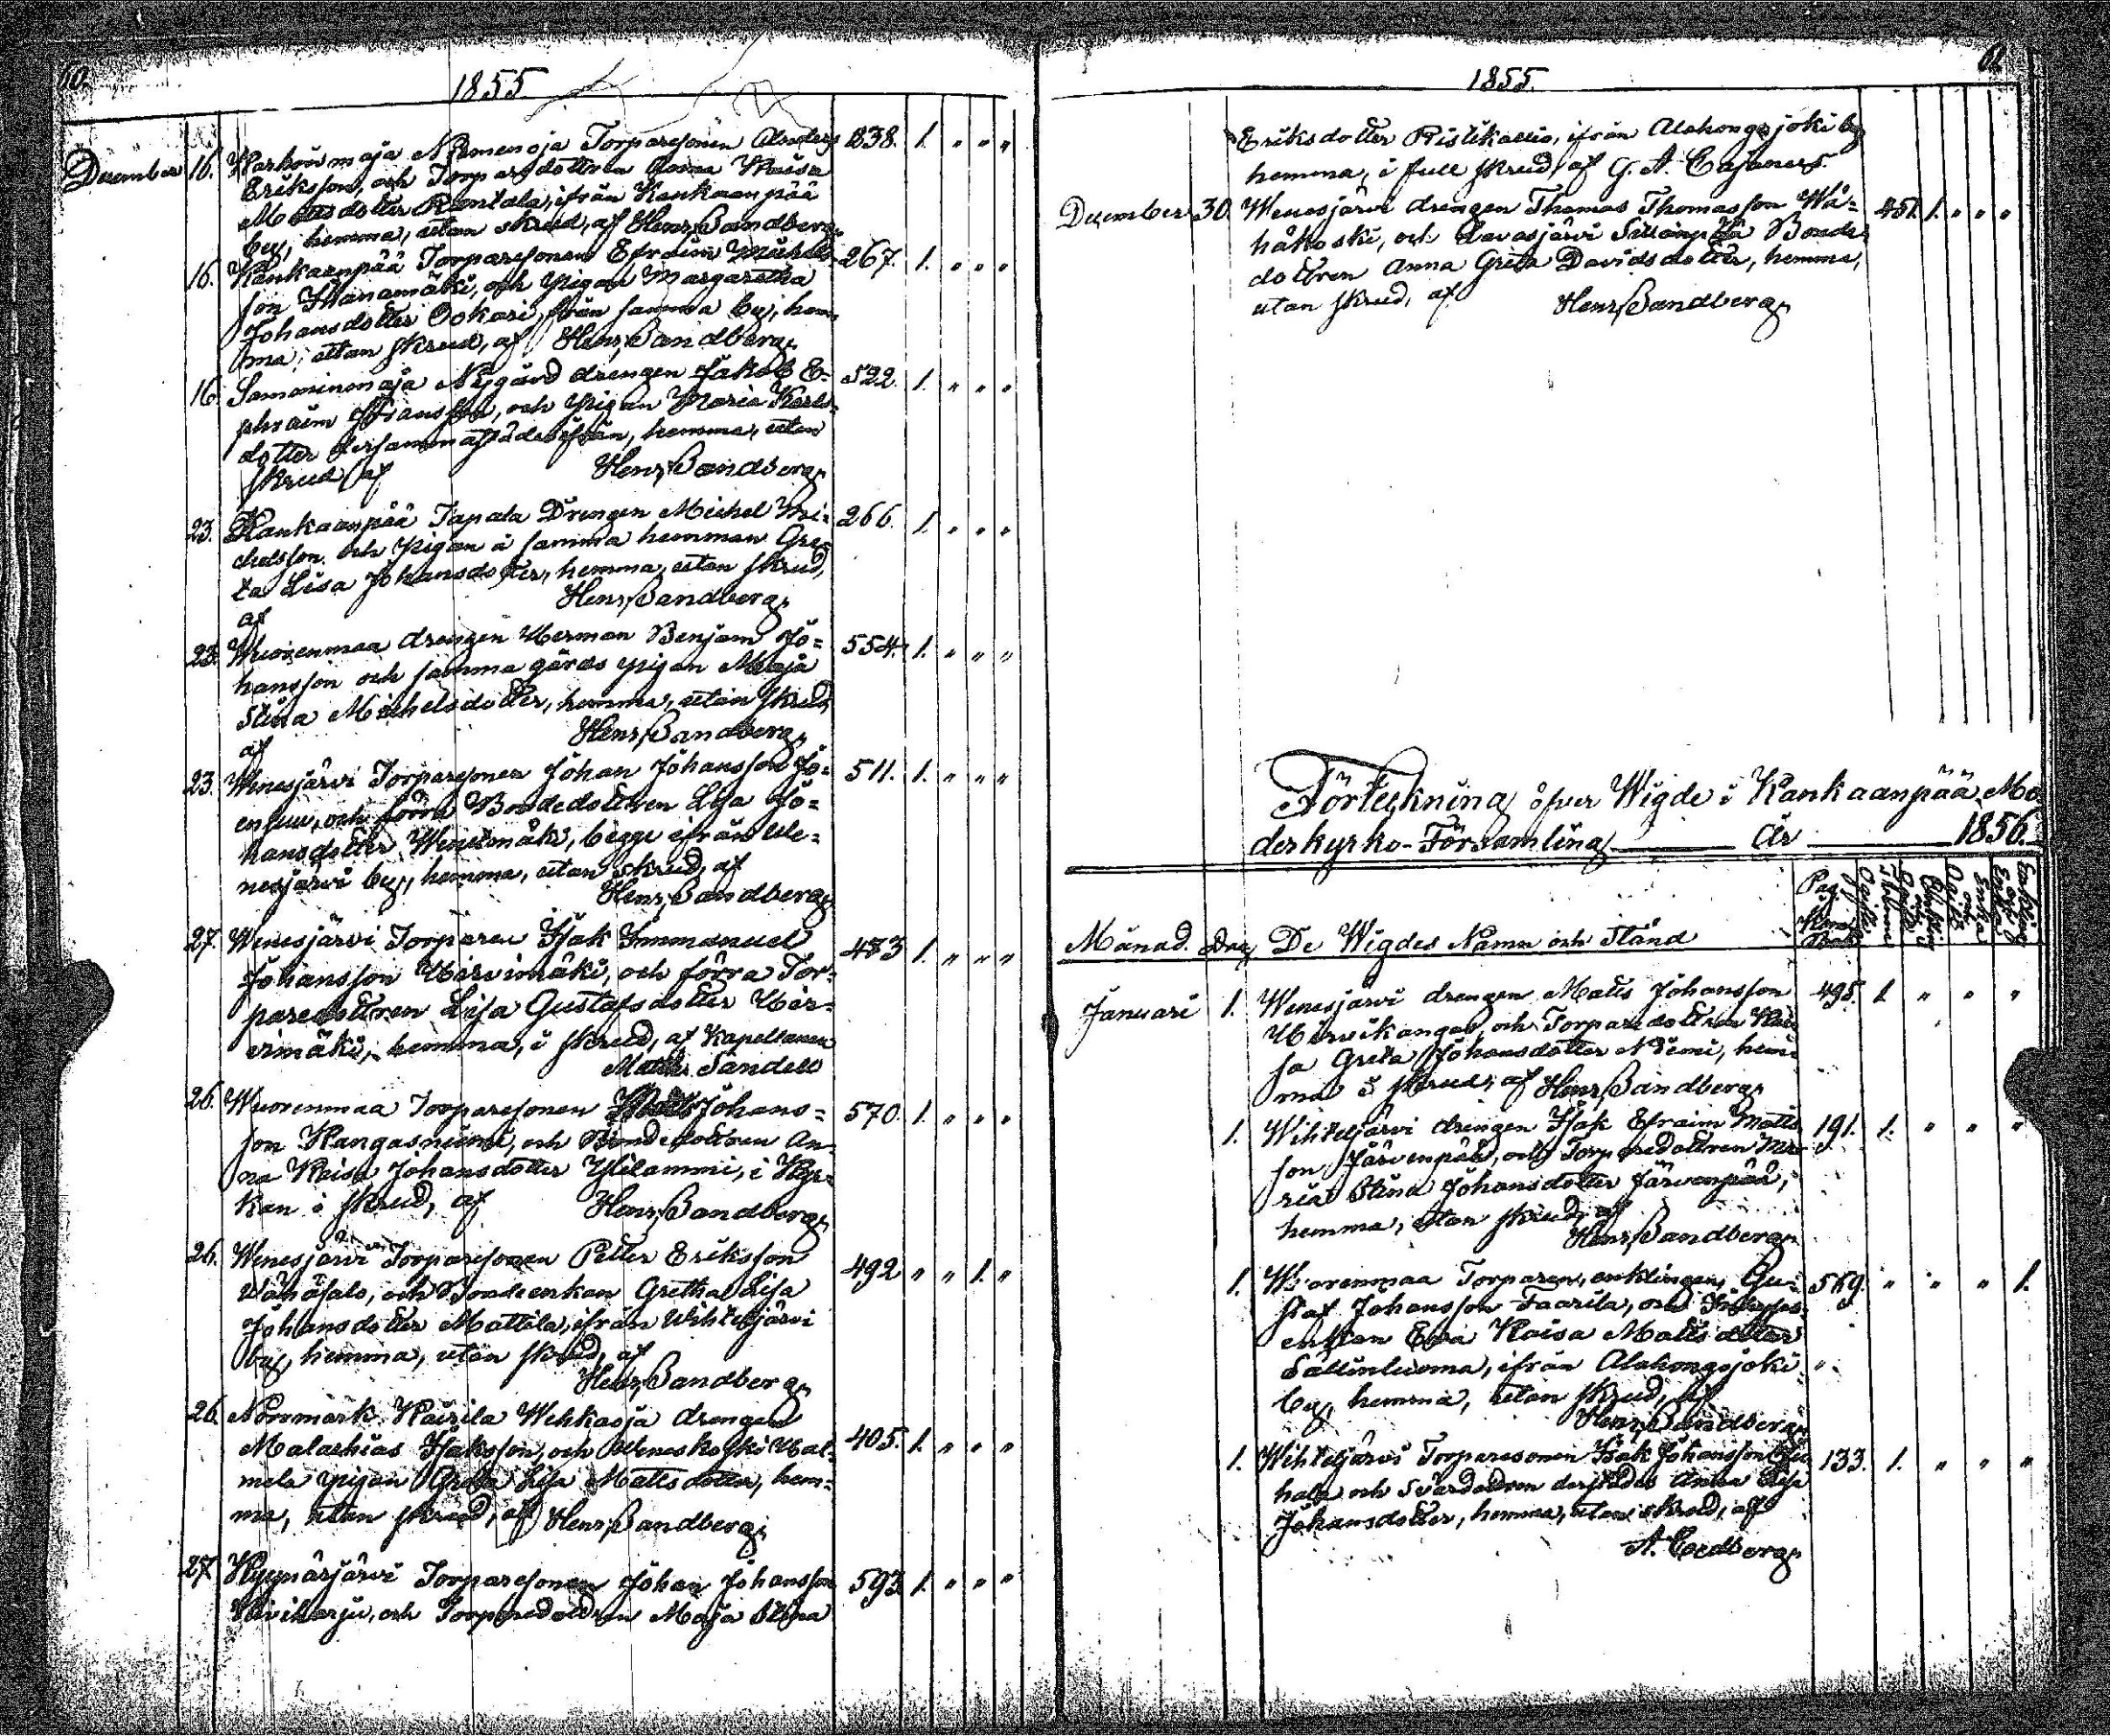 60.
1855
December 16. Harhoismaja Niemenoja Torparesonen Anders 838. 1. " " "
Eriksson, och Torparedottren Anna Kaisa
Mattsdotter Rantala, ifrån Kankaanpää
by, hemma, utan skrud, af Henr. Sandberg.
16. Kankaanpää Torparesonen Efraim Michels- 267. 1. " " "
son Hanamäki, och pigan Margaretha
Johansdotter Ookari, från samma by, hem-
ma, utan skrud, af Henr. Sandberg.
16. Samminmaja Nygård drengen Jakob E- 522. 1. " " "
phraim Fransson, och pigan Maria Karls-
dotter dersammastädes ifrån, hemma, utan
skrud af Henr. Sandberg.
23. Kankaanpää Tapala Drengen Michel Mi- 266. 1. " " "
chelsson och pigan å samma hemman Gre-
ta Lisa Johansdotter, hemma, utan skrud,
af Henr. Sandberg.
23. Wuorenmaa drengen Herman Benjam Jo- 554. 1. " " "
hansson och samma gårds pigan Maja
Stina Michelsdotter, hemma, utan skrud
af Henr. Sandberg.
23. Wenesjärvi Torparesonen Johan Johansson Jo- 511. 1. " " "
ensuu, och förra Bondedottren Lisa Jo-
hansdotter Wenesmäki, begge ifrån We-
nesjärvi by, hemma, utan skrud, af
Henr. Sandberg.
27. Wenesjärvi Torparen Isak Immanuel 483 1. " " "
Johansson Hirvimäki, och förra Tor-
paredottren Lisa Gustafsdotter Hir-
vimäki, hemma, i skrud, af Kapellanen
Matth. Sandell
26. Wuorenmaa Torparesonen Johans- 570. 1. " " "
son Kangasniemi, och Bondedottren An-
na Kaisa Johansdotter Ylilammi, i Kyr-
kan i skrud, af Henr. Sandberg.
26. Wenesjärvi Torparesonen Petter Eriksson 492 " " 1. "
Vähäsalo, och Bondeenkan Gretha Lisa
Johansdotter Mattila, ifrån Wihteljärvi
by, hemma, utan skrud, af
Henr. Sandberg.
26. Norrmark Kairila Wehkaoja drengen
Malachias Isaksson, och Weneskoski Hal- 405. 1. " " "
mela pigan Greta Lisa Mattsdotter, hem-
ma, utan skrud, af Henr. Sandberg.
27. Hyynärjärvi Torparesonen Johan Johansson 593 1. " " "
Kiviharju, och Torparedottren Maja Stina
61
1855.
Eriksdotter Ristikallio, ifrån Alahongojoki by
hemma, i full skrud, af G. A. Cajanus.
December 30. Wenesjärvi drengen Thomas Thomasson Wä- 451. 1. " " "
håkoski, och Lavasjärvi Sillanpää Bonde-
dottren Anna Greta Davidsdotter, hemma,
utan skrud, af Henr. Sandberg.
Förteckning öfver Wigde i Kankaanpää Mo-
derkyrko-Församling År 1856.
Månad. Dag. De Wigdes Namn och Stånd
Januari 1. Wenesjärvi drengen Matts Johansson 495. 1. " " "
Hirvikangas, och Torparedottren Kai-
sa Greta Johansdotter Niemi, hem-
ma i skrud, af Henr. Sandberg.
1. Wihteljärvi drengen Isak Efraim Matts- 191. 1. " " "
son Järvenpää, och Torparedottren Ma-
ria Stina Johansdotter Järvenpää,
hemma, utan skrud, af
Henr. Sandberg.
1. Wuorenmaa Torparen, enklingen, Gu- 569. " " " 1.
staf Johansson Taarila, och Inhyses-
enkan Eva Kaisa Mattsdotter
Sällinluoma, ifrån Alahongojoki
by, hemma, utan skrud, af
Henr. Sandberg.
1. Wihteljärvi Torparesonen Isak Johansson 133. 1. " " "
och Svärdottren derstädes Anna Lisa
Johansdotter, hemma, utan skrud, af
A. Cedberg.